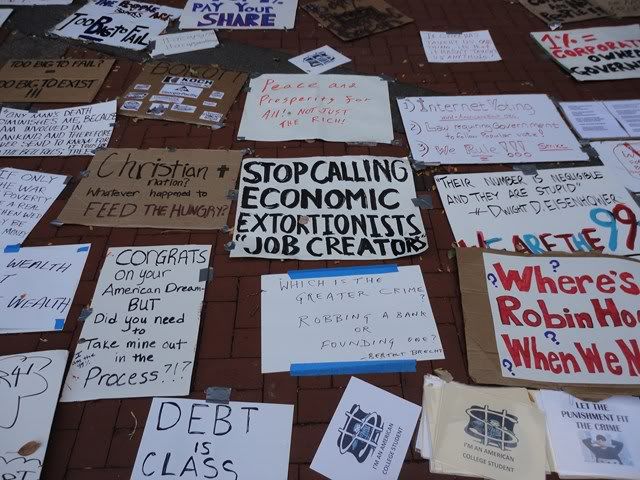 THE PEOPLE
ARE
TOO BIG TO FAIL
PAY YOUR
SHARE
1% =
CORPORATE
OWNED
GOVERNMENT
TOO BIG TO FAIL?
=
TOO BIG TO EXIST
!!!
BOYCOTT
KOCH
Georgia-Pacific
Peace and
Prosperity for
All! NOT JUST
THE RICH!
1) Internet Voting
2) Law requiring Government
to follow Popular vote!
3) We Rule!!!
ONE MAN'S DEATH
DIMINISHES ME, BECAUSE
I AM INVOLVED IN
MANKIND AND THEREFORE
Christian
nation?
Whatever happened to
FEED THE HUNGRY?
STOP CALLING
ECONOMIC
EXTORTIONISTS
"JOB CREATORS"
"THEIR NUMBER IS NEGLIGIBLE
AND THEY ARE STUPID"
- DWIGHT D. EISENHOWER
WE ARE THE 99
IF ONLY
THE WAR
POVERTY
WEALTH
WEALTH
CONGRATS
on your
American Dream
BUT
Did you need
to
Take mine out
in the
Process?!?
WHICH IS THE
GREATER CRIME?
ROBBING A BANK
OR
FOUNDING ONE?
- BERTOLT BRECHT
Where's
Robin Hoo
When We N
DEBT
IS
CLASS
I'M AN AMERICAN
COLLEGE STUDENT
I'M AN AMERICAN
COLLEGE STUDENT
LET THE
PUNISHMENT FIT
THE CRIME